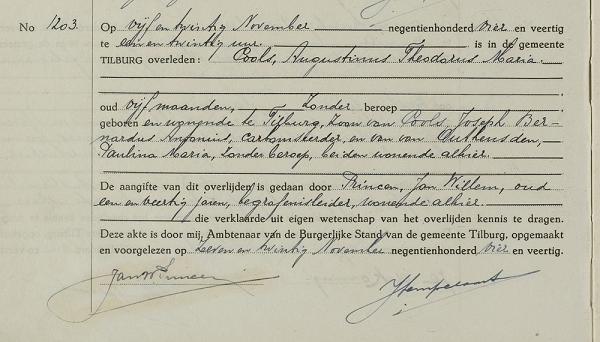 No 1203.
Op vijf en twintig November negentienhonderd vier en veertig
te een en twintig uur. is in de gemeente
TILBURG overleden: Cools, Augustinus Theodorus Maria.
oud vijf maanden, Zonder beroep
geboren en wonende te Tilburg, zoon van Cools, Joseph Ber-
nardus Antonius, cartonsteeder, en van van Outheusden,
Paulina Maria, zonder beroep, beiden wonende alhier.
De aangifte van dit overlijden is gedaan door Princen, Jan Willem, oud
een en veertig jaren, begrafenisleider, wonende alhier.
die verklaarde uit eigen wetenschap van het overlijden kennis te dragen.
Deze akte is door mij, Ambtenaar van de Burgerlijke Stand van de gemeente Tilburg, opgemaakt
en voorgelezen op zeven en twintig November negentienhonderd vier en veertig.